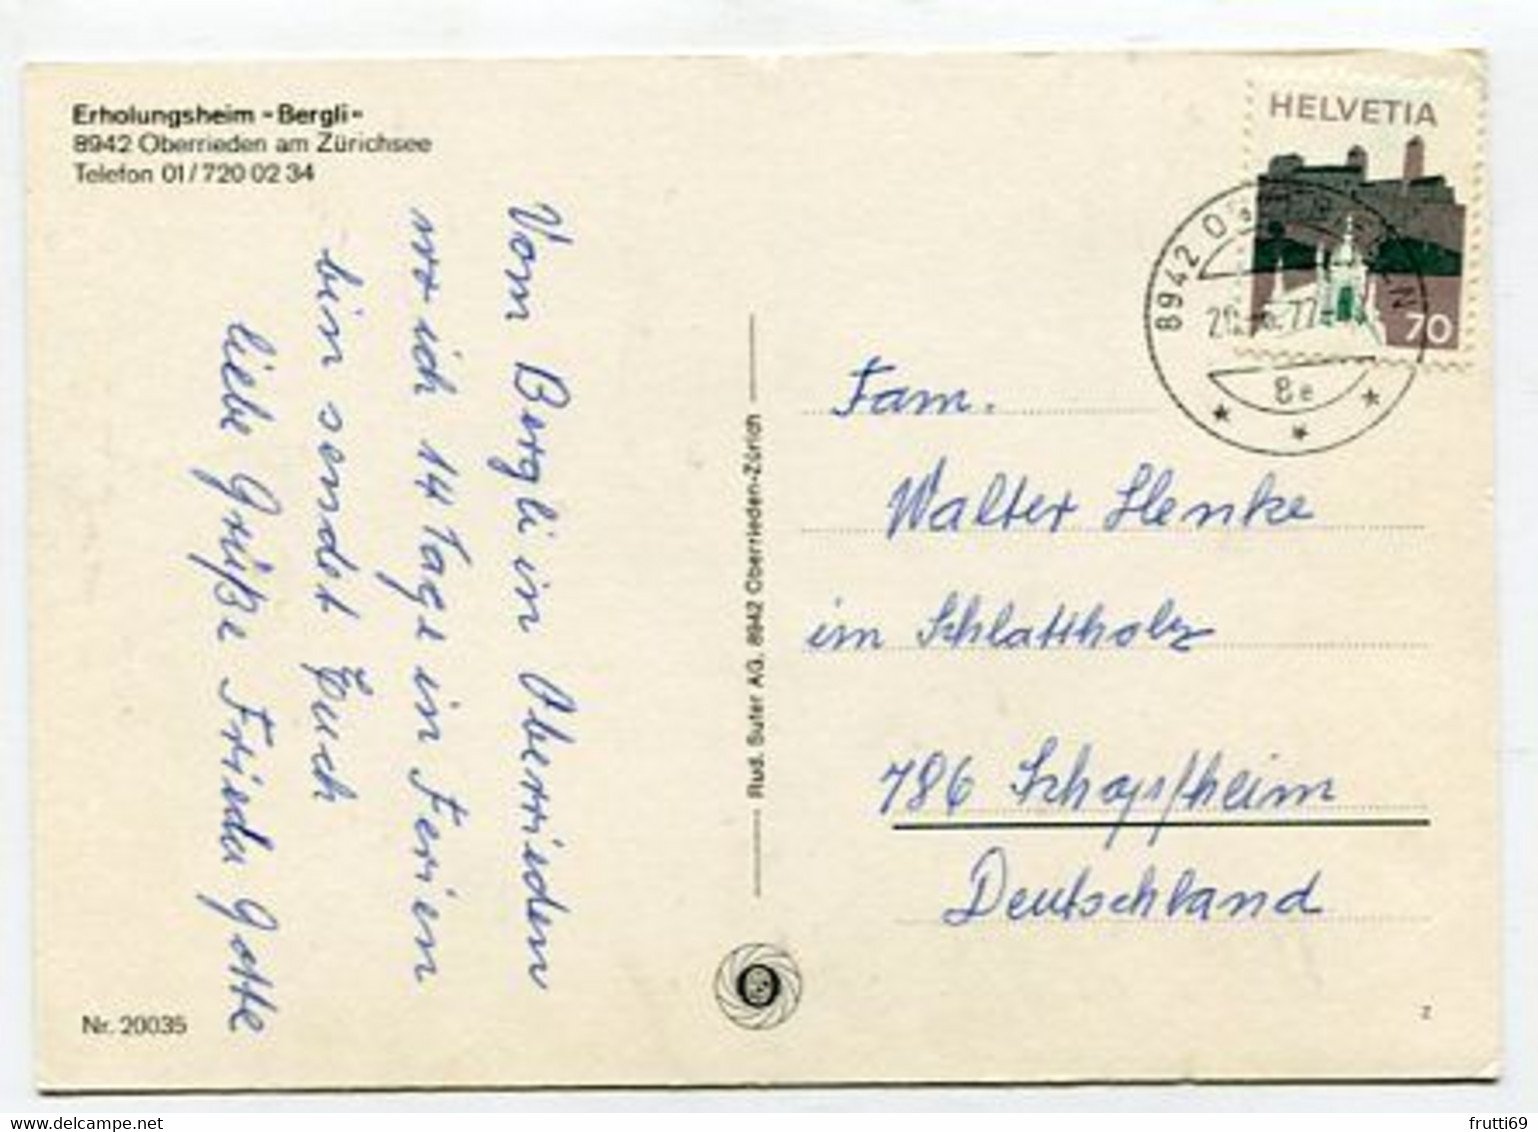 Erholungsheim «Bergli»
8942 Oberrieden am Zürichsee
Telefon 01/720 02 34
Vom Bergli in Oberrieden
wo ich 14 Tage in Ferien
bin sendet Euch
liebe Grüße Frieda Gotte
Nr. 20035
Rud. Suter AG, 8942 Oberrieden-Zürich
HELVETIA
70
8942 OBERRIEDEN
77
8e
Fam.
Walter Henke
im Schlattholz
786 Schopfheim
Deutschland
z
delcampe.net
frutti69